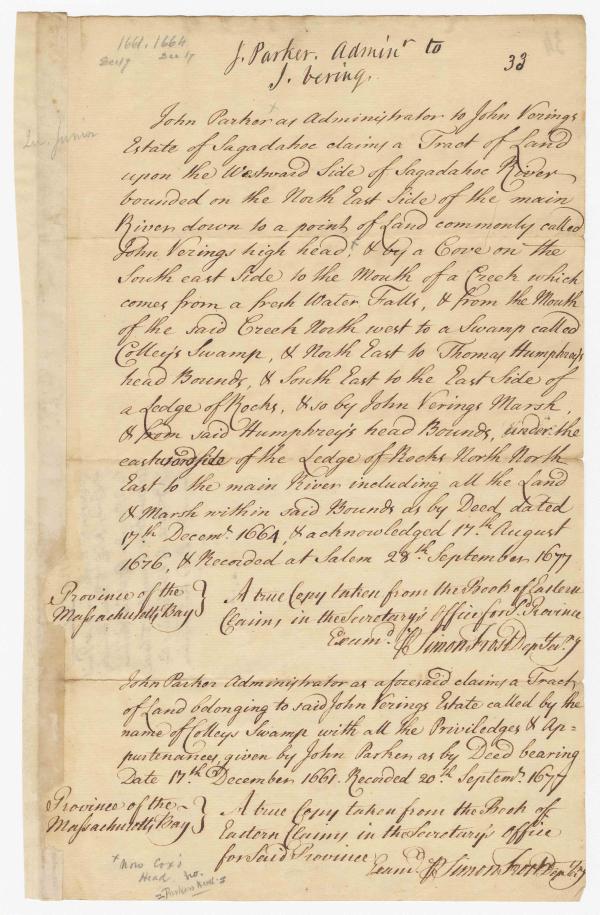 1661. 1664
Dec 17 Dec 17
J. Parker. Admin.r to
J. Vering.
33
Junior
John Parker as Administrator to John Verings
Estate of Sagadahoc claims a Tract of Land
upon the Westward Side of Sagadahoc River
bounded on the North East Side of the main
River down to a point of Land commonly called
John Verings high head, & by a Cove on the
South east Side to the Mouth of a Creek which
comes from a fresh Water Falls, & from the Mouth
of the said Creek North west to a Swamp called
Colley's Swamp, & North East to Thomas Humphrey's
head Bounds, & South East to the East Side of
a Ledge of Rocks, & so by John Verings Marsh,
& from said Humphrey's head Bounds, under the
eastward side of the Ledge of Rocks North North
East to the main River including all the Land
& Marsh within said Bounds as by Deed dated
17.th Decem.r 1664 & acknowledged 17.th August
1676, & Recorded at Salem 28.th September 1677
Province of the } A true Copy taken from the Book of Eastern
Massachusetts Bay } Claims in the Secretary's Office for s.d Province
Exam.d p Simon Frost Dep Sec.ry
John Parker Administrator as aforesaid claims a Tract
of Land belonging to said John Verings Estate called by the
name of Colleys Swamp with all the Priviledges & Ap=
purtenances, given by John Parker as by Deed bearing
Date 17.th December 1661. Recorded 20.th Septem.r 1677
Province of the } A true Copy taken from the Book of
Massachusetts Bay } Eastern Claims in the Secretary's Office
for Said Province
Exam.d p Simon Frost Dep Sec.ry
x Now Cox's
Head
Parkers Head